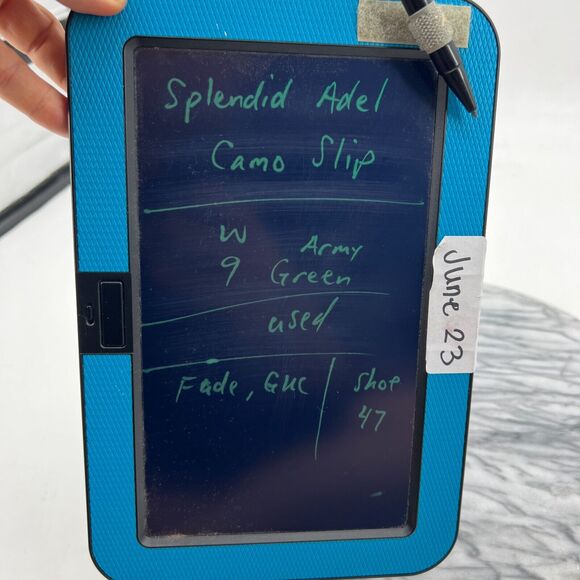 Splendid Adel
Camo Slip
W Army
9 Green
used
Fade, GUC
Shoe
47
June 23